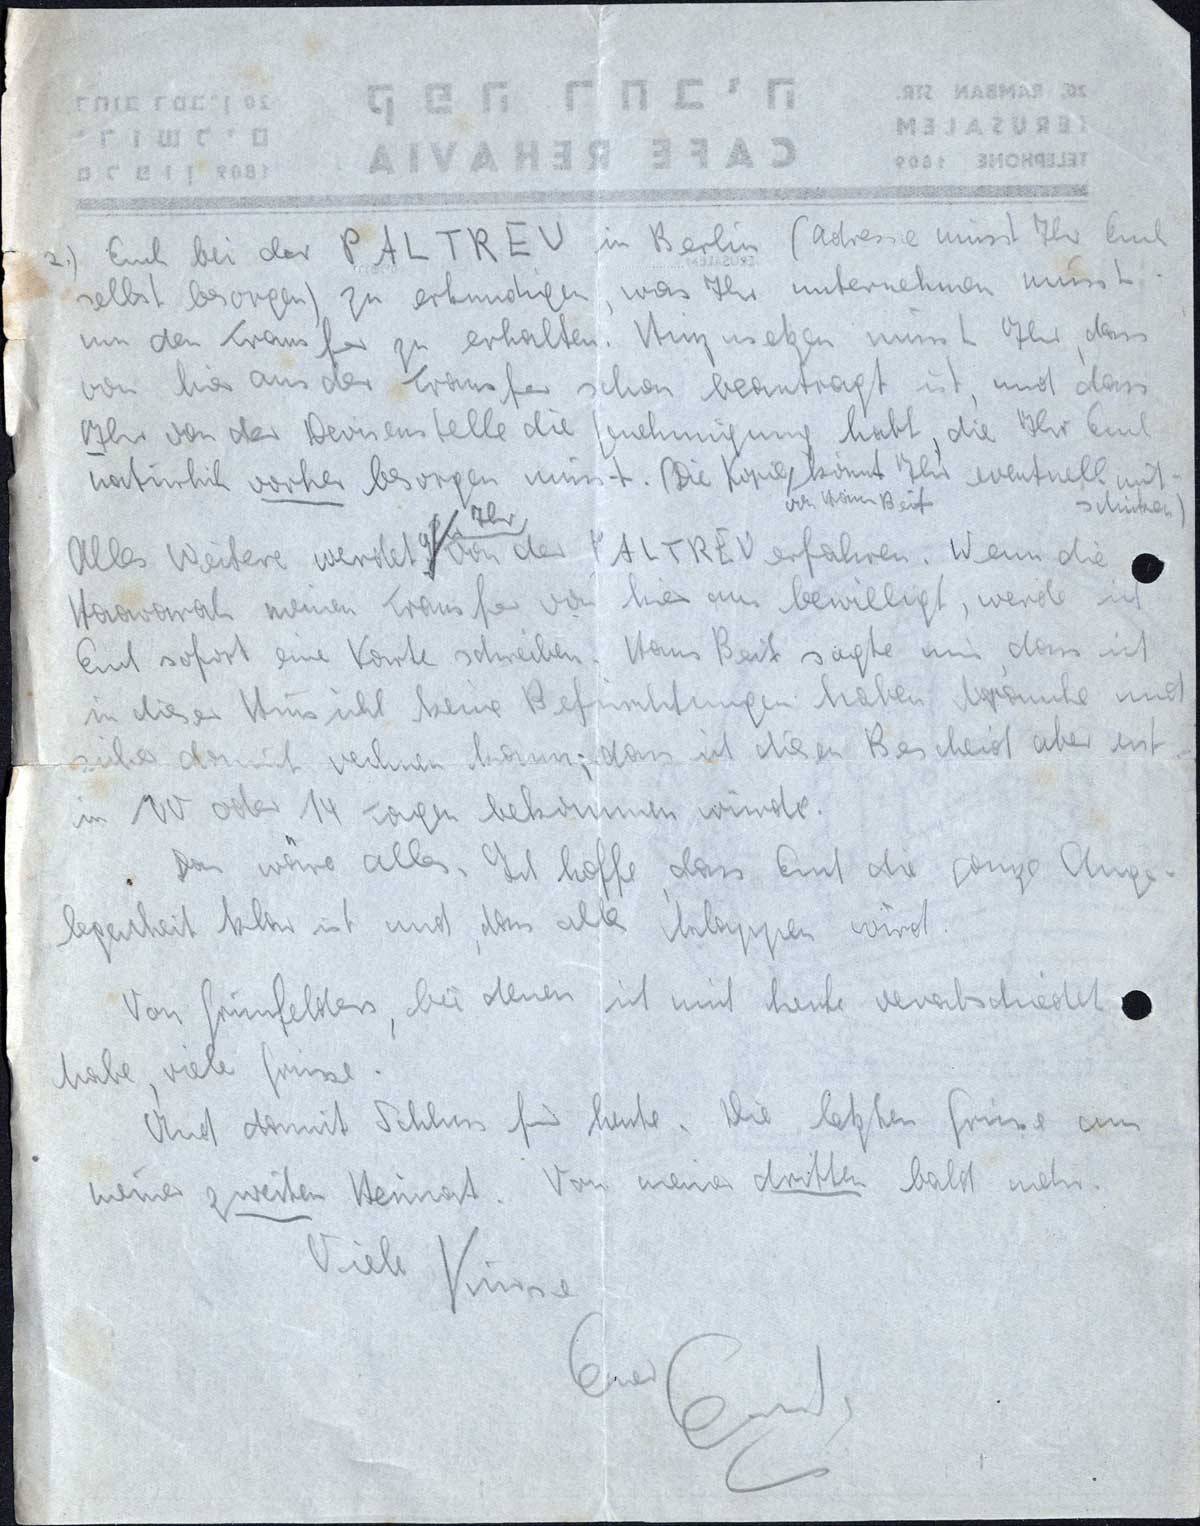 20, RAMBAN STR. קפה רחביה רחוב רמב"ן 20
JERUSALEM CAFE REHAVIA ירושלים
TELEPHONE 1809 טלפון 1809
2.) Euch bei der PALTREU in Berlin (Adresse müsst Ihr Euch
selbst besorgen) zu erkundigen, was Ihr unternehmen müsst
um den Transfer zu erhalten. Hinzusetzen müsst Ihr, dass
von hier aus der Transfer schon beantragt ist, und dass
Ihr von der Devisenstelle die Genehmigung habt, die Ihr Euch
natürlich vorher besorgen müsst. (Die Kopie könnt Ihr eventuell mit-
von Hans Beit schicken)
Ihr
Alles Weitere werdet von der PALTREU erfahren. Wenn die
Haavarah meinen Transfer von hier aus bewilligt, werde ich
Euch sofort eine Karte schreiben. Hans Beit sagte mir, dass ich
in dieser Hinsicht keine Befürchtungen haben brauche und
sicher damit rechnen kann; dass ich diesen Bescheid aber erst
in 10 oder 14 Tagen bekommen würde.
Das wäre alles. Ich hoffe, dass Euch die ganze Ange-
legenheit klar ist und, dass alles klappen wird.
Von Grünfelders, bei denen ich mich heute verabschiedet
habe, viele Grüsse.
Und damit Schluss für heute. Die letzten Grüsse aus
meiner zweiten Heimat. Von meiner dritten bald mehr.
Viele Küsse
Euer